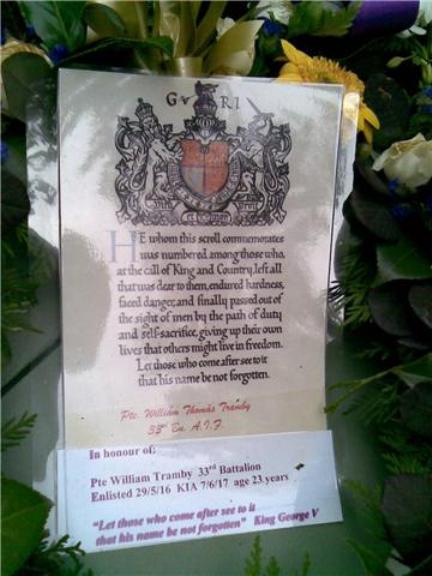 G V R I
HE whom this scroll commemorates
was numbered among those who,
at the call of King and Country, left all
that was dear to them, endured hardness,
faced danger, and finally passed out of
the sight of men by the path of duty
and self-sacrifice, giving up their own
lives that others might live in freedom.
Let those who come after see to it
that his name be not forgotten.
Pte. William Thomas Tramby
33rd Bn. A.I.F.
In honour of:
Pte William Tramby 33rd Battalion
Enlisted 29/5/16 KIA 7/6/17 age 23 years
"Let those who come after see to it
that his name be not forgotten" King George V